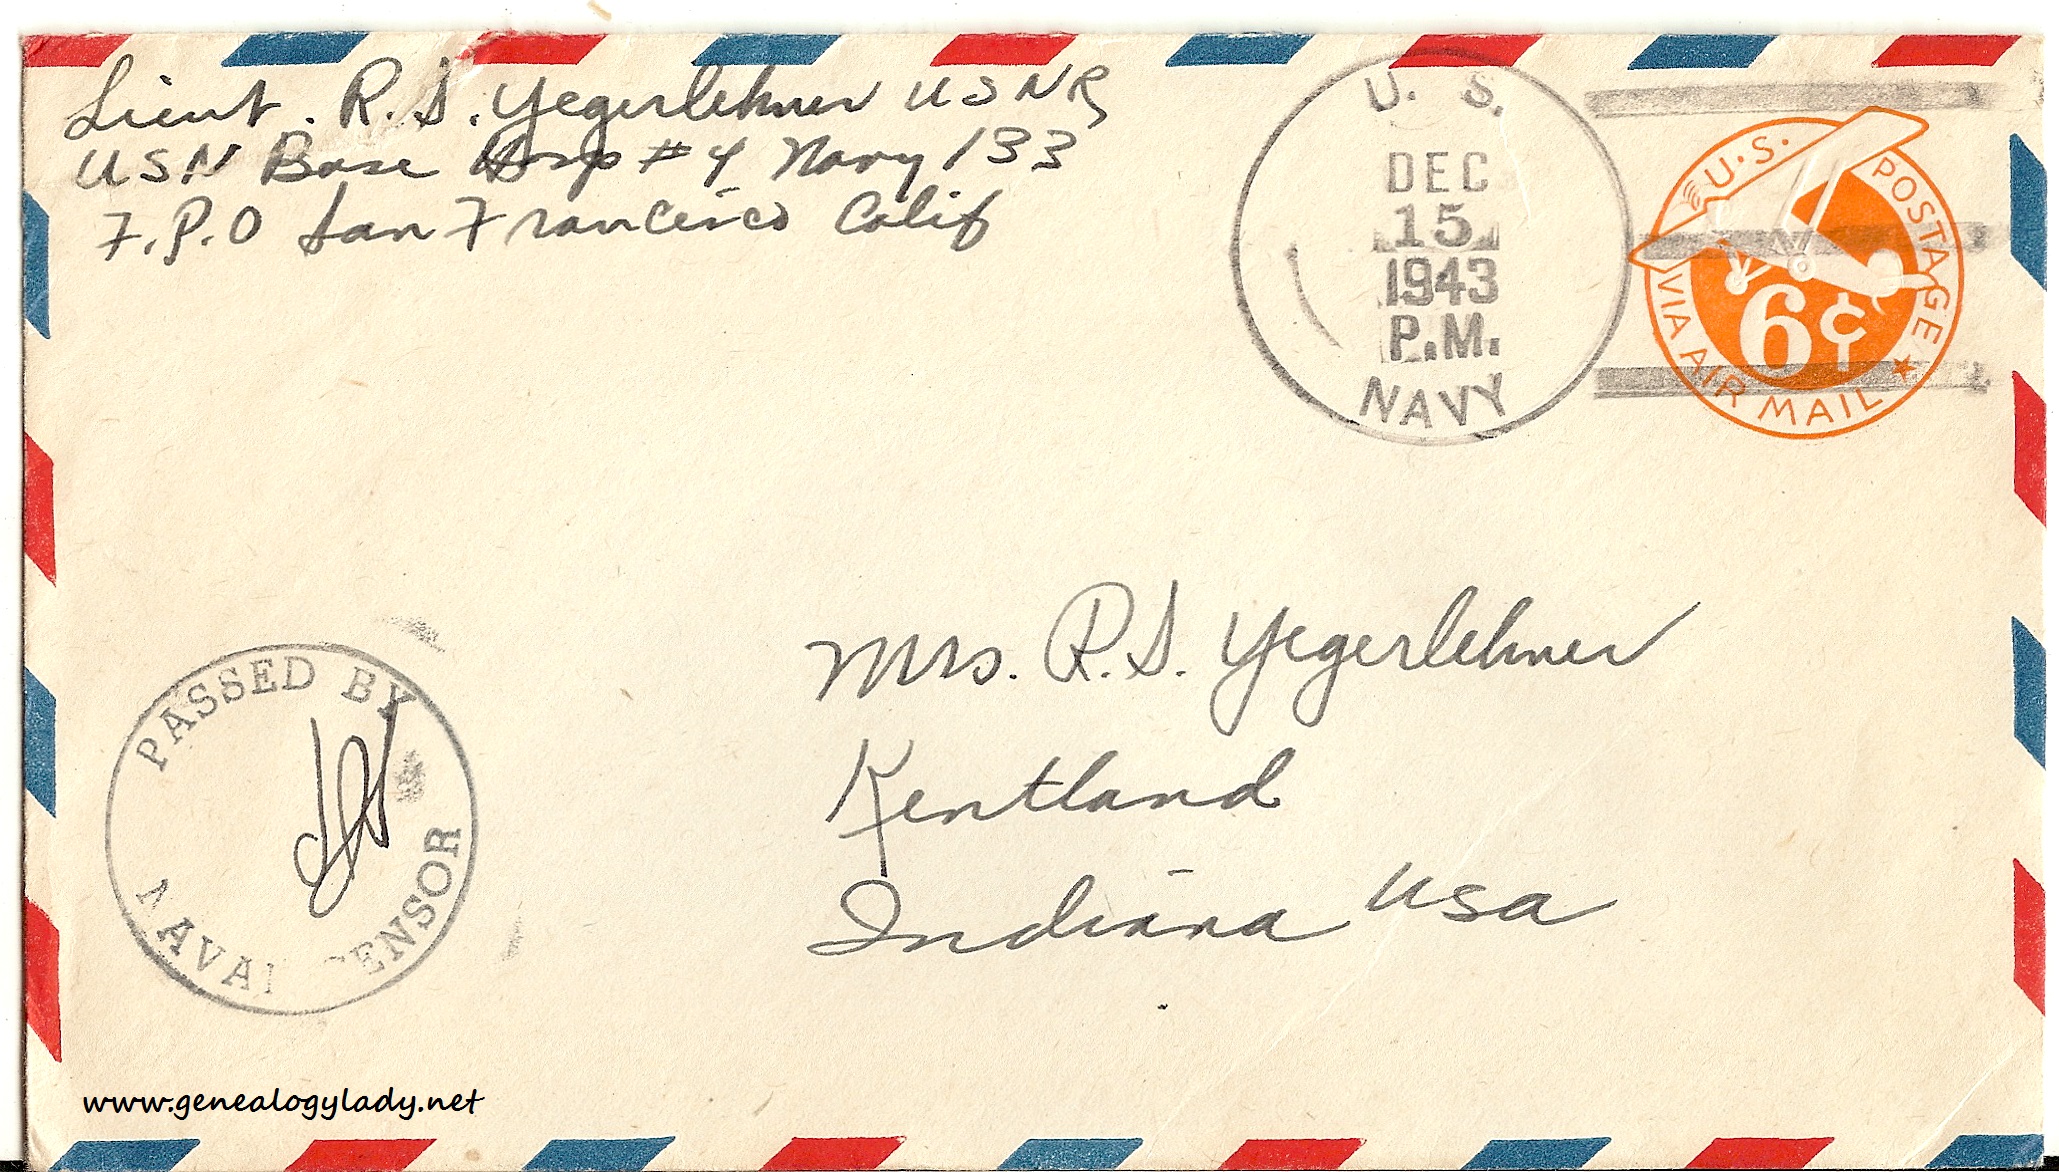 Lieut. R. S. Yegerlehner USNR
USN Base Hosp #4 Navy 133
F.P.O San Francisco Calif
U. S.
DEC
15
1943
P.M.
NAVY
U.S. POSTAGE
6¢
VIA AIR MAIL
Mrs. R. S. Yegerlehner
Kentland
Indiana USA
PASSED BY
NAVAL CENSOR
www.genealogylady.net